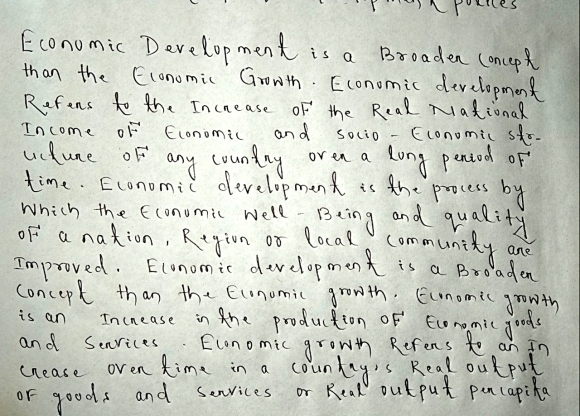 policies
Economic Development is a Broader Concept
than the Economic Growth. Economic development
Refers to the Increase of the Real National
Income of Economic and socio-Economic str-
ucture of any country over a long period of
time. Economic development is the process by
Which the Economic Well-Being and quality
of a nation, Region or local Community are
Improved. Economic development is a Broader
Concept than the Economic growth. Economic growth
is an Increase in the production of Economic goods
and Services. Economic growth Refers to an In
crease over time in a Country's Real output
of goods and Services or Real output percapita